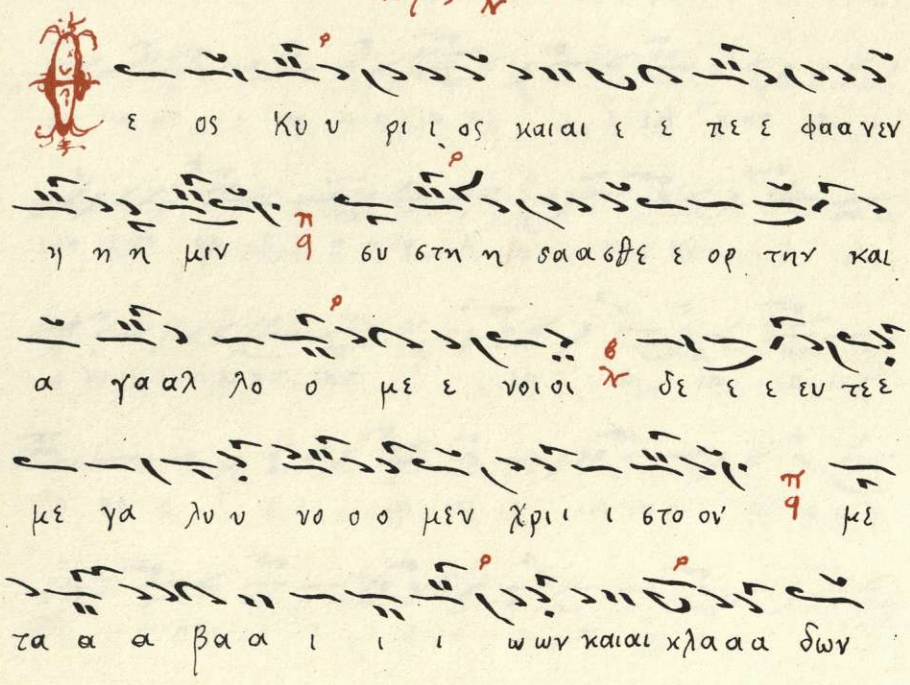 Θ ε ος Κυ υ ρι ι ος καιαι ε ε πε ε φαα νεν
η η η μιν πα συ στη η σαα σθε ε ορ την και
α γα αλ λο ο με ε νοι οι βου δε ε ε ευ τε ε
με γα λυ υ νο ο ο μεν Χρι ι ι στο ον πα με
τα α α βα α ι ι ι ω ων και αι κλα α α δων